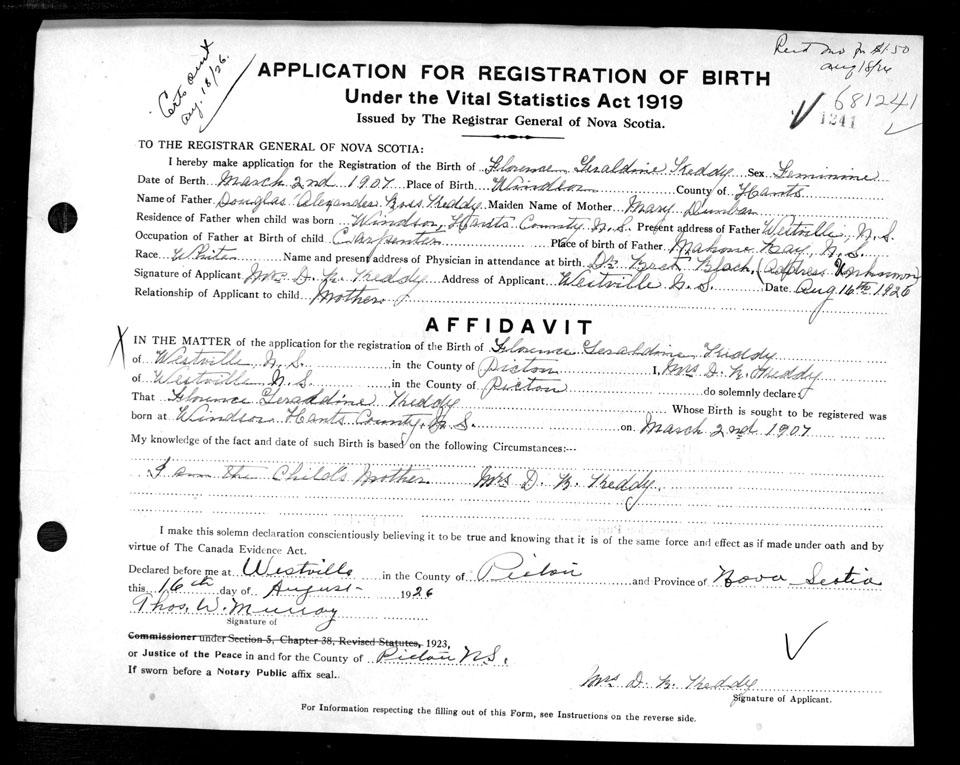 Certs sent
aug. 18/26.
Recd mo for $1.50
aug 18/26
681241
1241
APPLICATION FOR REGISTRATION OF BIRTH
Under the Vital Statistics Act 1919
Issued by The Registrar General of Nova Scotia.
TO THE REGISTRAR GENERAL OF NOVA SCOTIA:
I hereby make application for the Registration of the Birth of Florence Geraldine Keddy Sex Feminine
Date of Berth March 2nd 1907 Place of Birth Windsor County of Hants
Name of Father Douglas Alexander Ross Keddy Maiden Name of Mother Mary Dunbar
Residence of Father when child was born Windsor, Hants County N.S. Present address of Father Westville, N.S.
Occupation of Father at Birth of child Carpenter Place of birth of Father Mahone Bay, N.S.
Race White Name and present address of Physician in attendance at birth. Dr Black, (Address Unknown)
Signature of Applicant Mrs D. R. Keddy Address of Applicant Westville N.S. Date Aug 16th 1926
Relationship of Applicant to child Mother
AFFIDAVIT
IN THE MATTER of the application for the registration of the Birth of Florence Geraldine Keddy
of Westville N.S. in the County of Pictou I, Mrs D. R. Keddy
of Westville N.S. in the County of Pictou do solemnly declare
That Florence Geraldine Keddy Whose Birth is sought to be registered was
born at Windsor Hants County, N.S. on March 2nd 1907
My knowledge of the fact and date of such Birth is based on the following Circumstances:---
I am the Child's Mother. Mrs D. R. Keddy.
I make this solemn declaration conscientiously believing it to be true and knowing that it is of the same force and effect as if made under oath and by
virtue of The Canada Evidence Act.
Declared before me at Westville in the County of Pictou and Province of Nova Scotia
this 16th day of August 1926
Thos. W. Murray
Signature of
Commissioner under Section 5, Chapter 38, Revised Statutes, 1923,
or Justice of the Peace in and for the County of Pictou N.S.
If sworn before a Notary Public affix seal.
Mrs D. R. Keddy
Signature of Applicant.
For Information respecting the filling out of this Form, see Instructions on the reverse side.